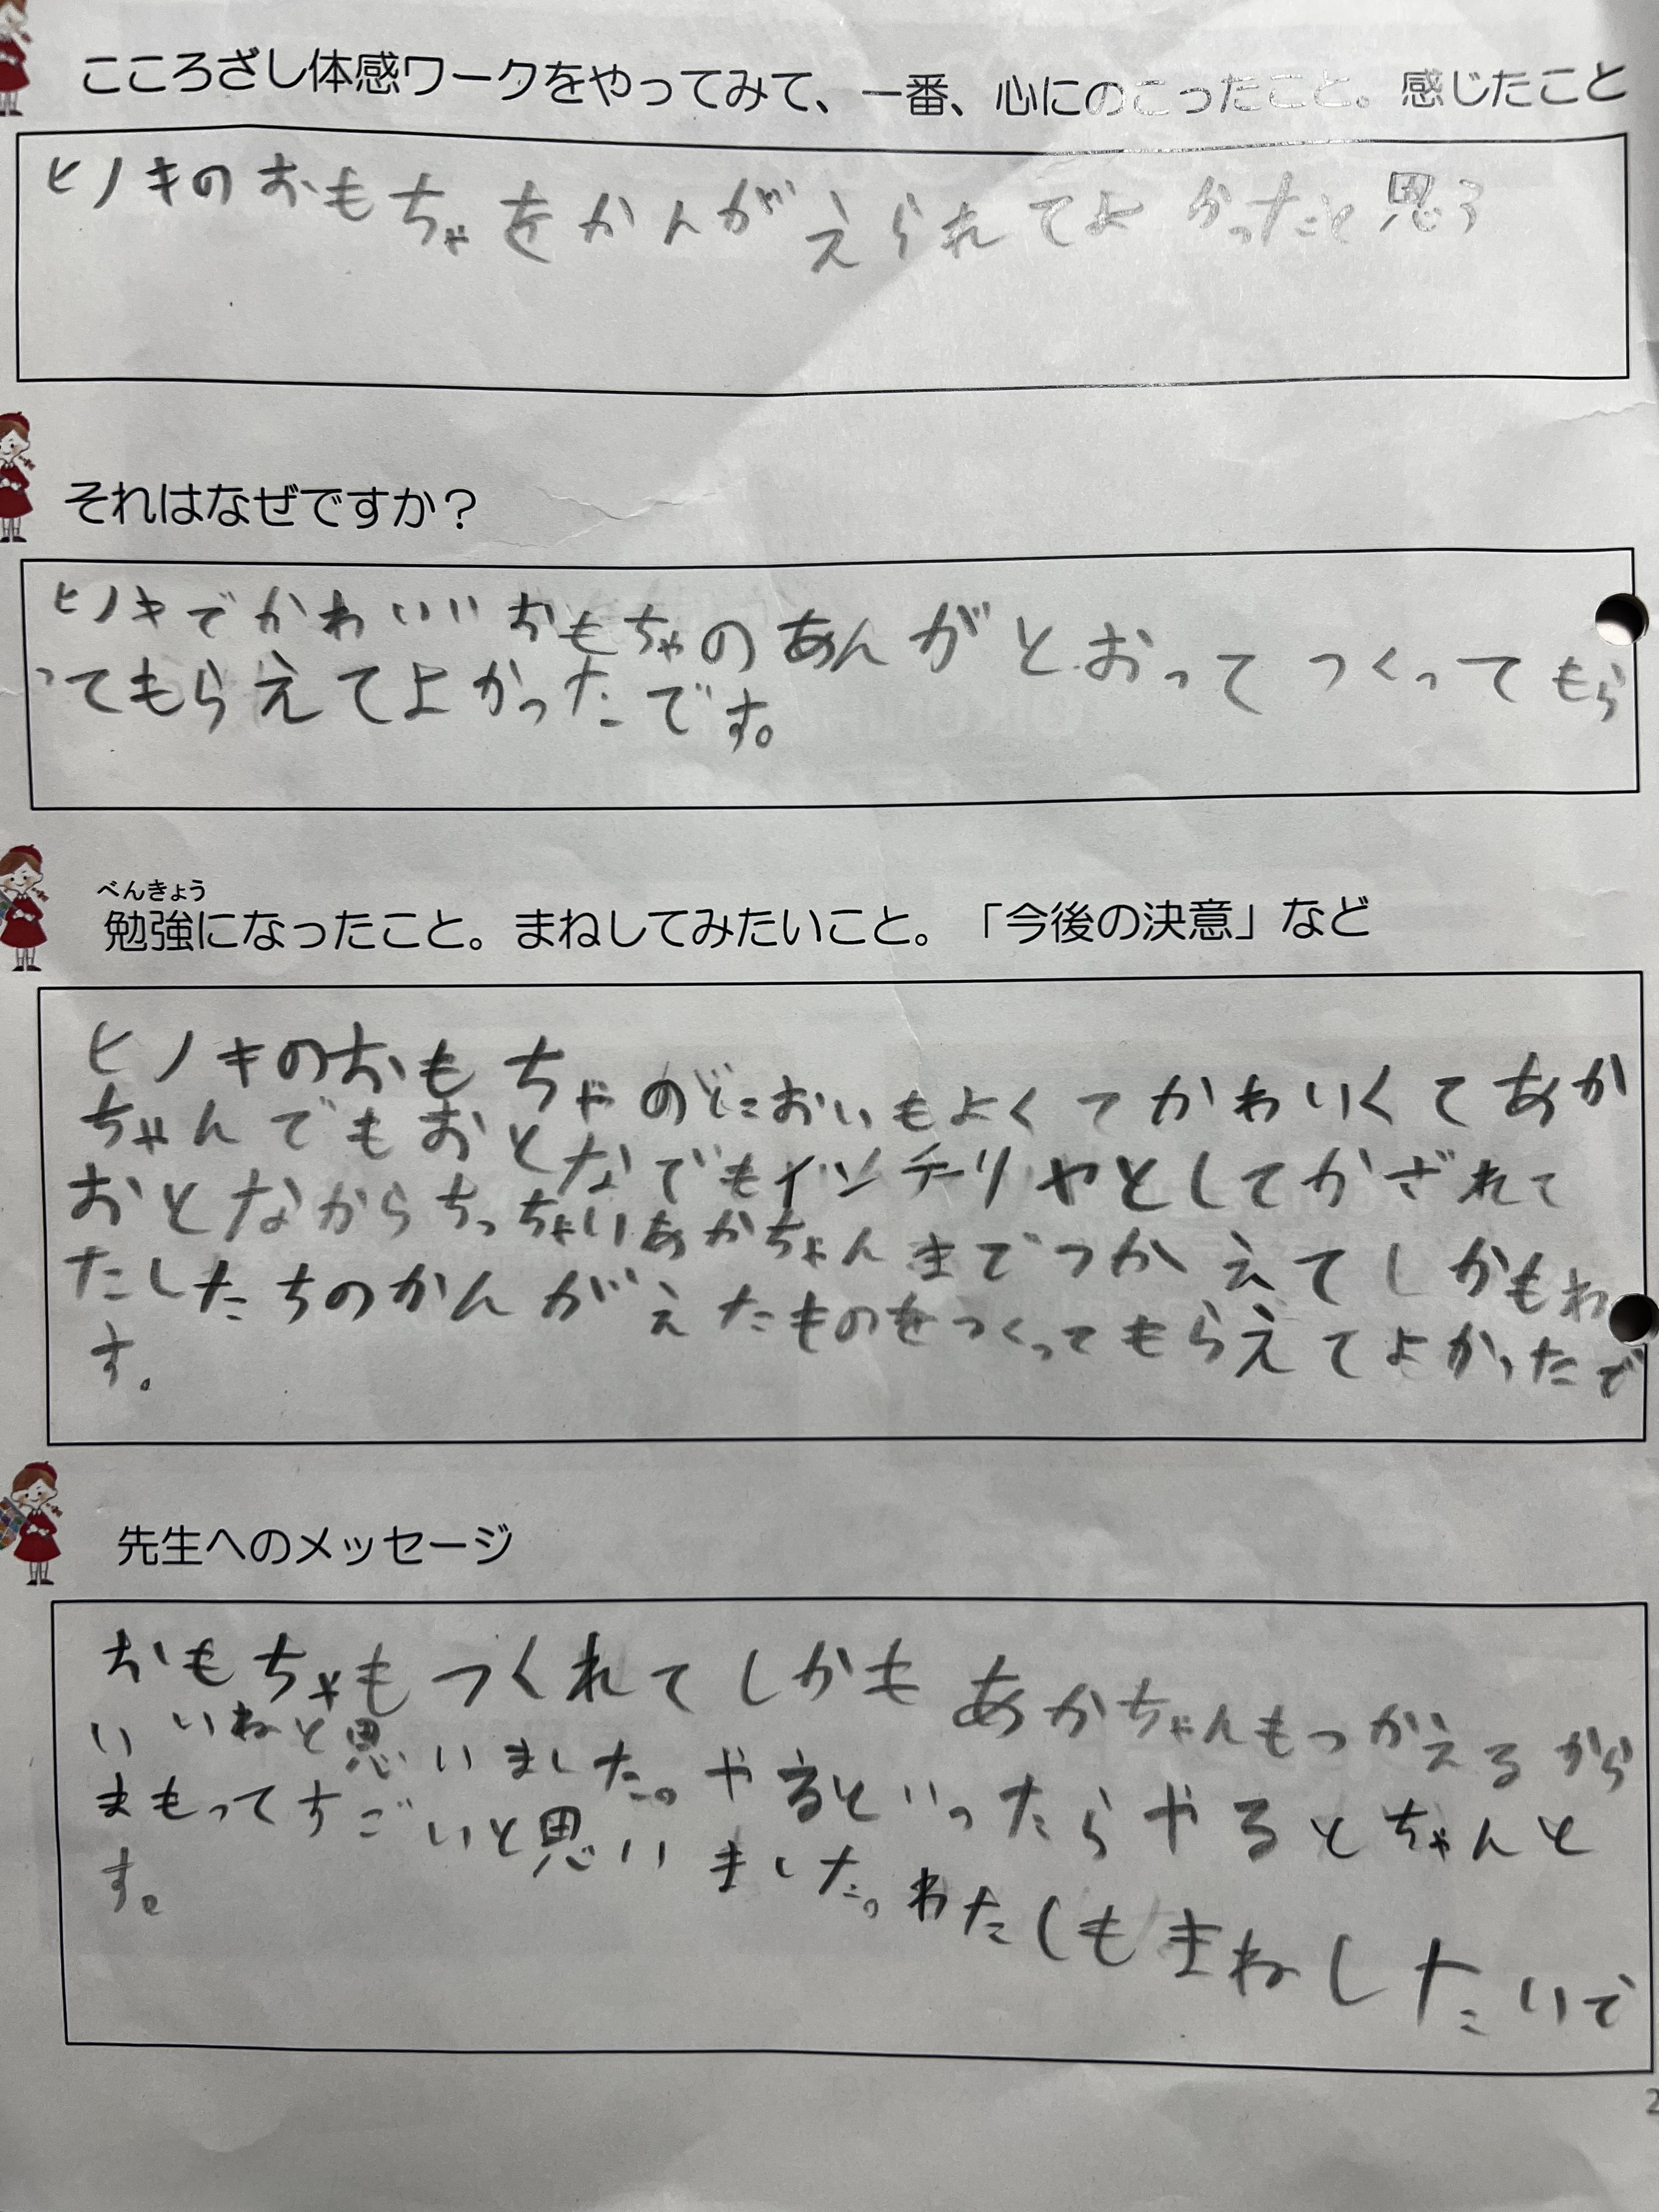 こころざし体感ワークをやってみて、一番、心にのこったこと。感じたこと
ヒノキのおもちゃをかんがえられてよかったと思う
それはなぜですか？
ヒノキでかわいいおもちゃのあんがとおってつくってもら
ってもらえてよかったです。
べんきょう
勉強になったこと。まねしてみたいこと。「今後の決意」など
ヒノキのおもちゃのにおいもよくてかわいくてあか
ちゃんでもおとなでもインテリやとしてかざれて
おとなからちっちゃいあかちゃんまでつかえてしかもわ
たしたちのかんがえたものをつくってもらえてよかったで
す。
先生へのメッセージ
おもちゃもつくれてしかもあかちゃんもつかえるから
いいねと思いました。やるといったらやるとちゃんと
まもってすごいと思いました。わたしもまねしたいで
す。
2